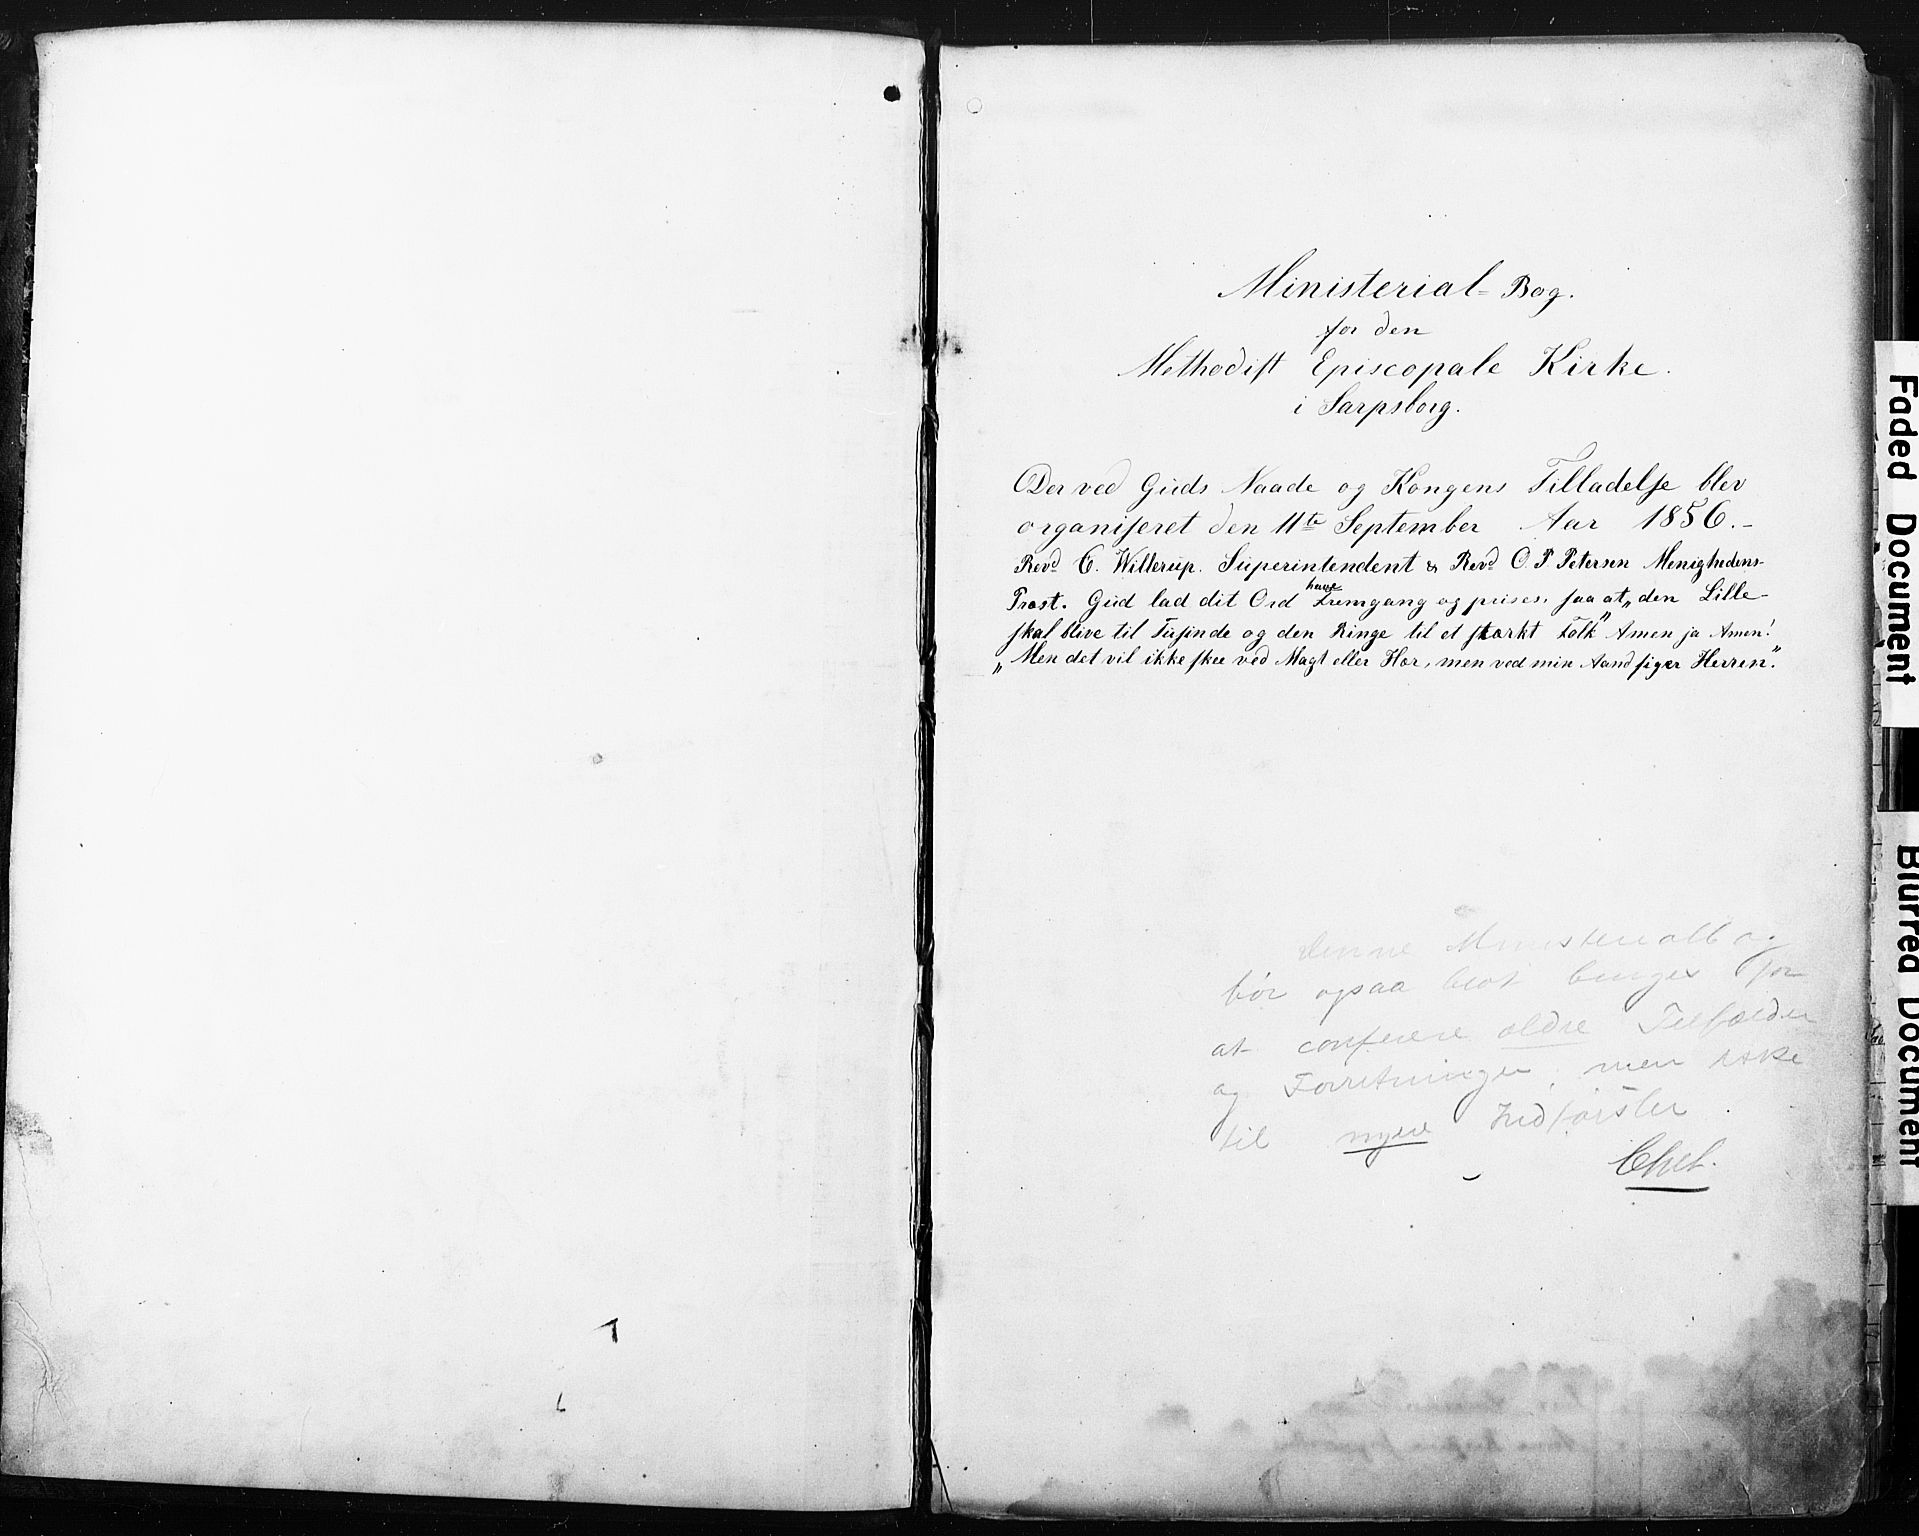 Ministerial-Bog.
for den
Methodist Episcopale Kirke.
i Sarpsborg.
Der ved Guds Naade og Kongens Tilladelse blev
organiseret den 11te September Aar 1856.-
Revd. C. Willerup. Superintendent & Revd. O. P. Petersen Menighedens-
Præst. Gud lad dit Ord have Fremgang og prises, saa at „den Lille-
skal blive til Tusinde og den Ringe til et stærkt Folk" Amen ja Amen!
„Men det vil ikke skee ved Magt eller Hær, men ved min Aand siger Herren."
Denne Ministerialbog
bør ogsaa blot bruges for
at conferere ældre Tilfælder
og Forretninger, men ikke
til nyere Indførsler.
Faded Document
Blurred Document